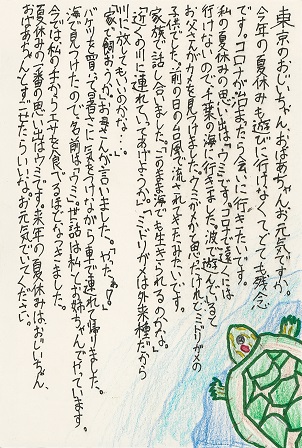 東京のおじいちゃん、おばあちゃんお元気ですか？
今年の夏休みも遊びに行けなくてとても残念
です。コロナが治まったら会いに行きたいです。
私の夏休みの思い出は、「ウミ」です。コロナで遠くには
行けないので、千葉の海に行きました。波で遊んでいると
お父さんがカメを見つけました。ウミガメかと思ったけれど、ミドリガメの
子供でした。前の日の台風で流されてきたみたいです。
家族で話し合いました。「このまま海でも生きられるのかな。」
「近くの川に連れていってあげようか。」「ミドリガメは外来種だから
川に放してもいいのかな…。」
「家で飼おうか。」お母さんが言いました。やったぁ♡
バケツを買って暑さに気をつけながら車で連れて帰りました。
海で見つけたので、名前は「ウミ」。世話は私とお姉ちゃんでやっています。
今では私の手からエサを食べるほどなつきました。
夏休みの一番の思い出はウミです。来年の夏休みは、おじいちゃん、
おばあちゃんとすごせたらいいな。お元気でいてください。